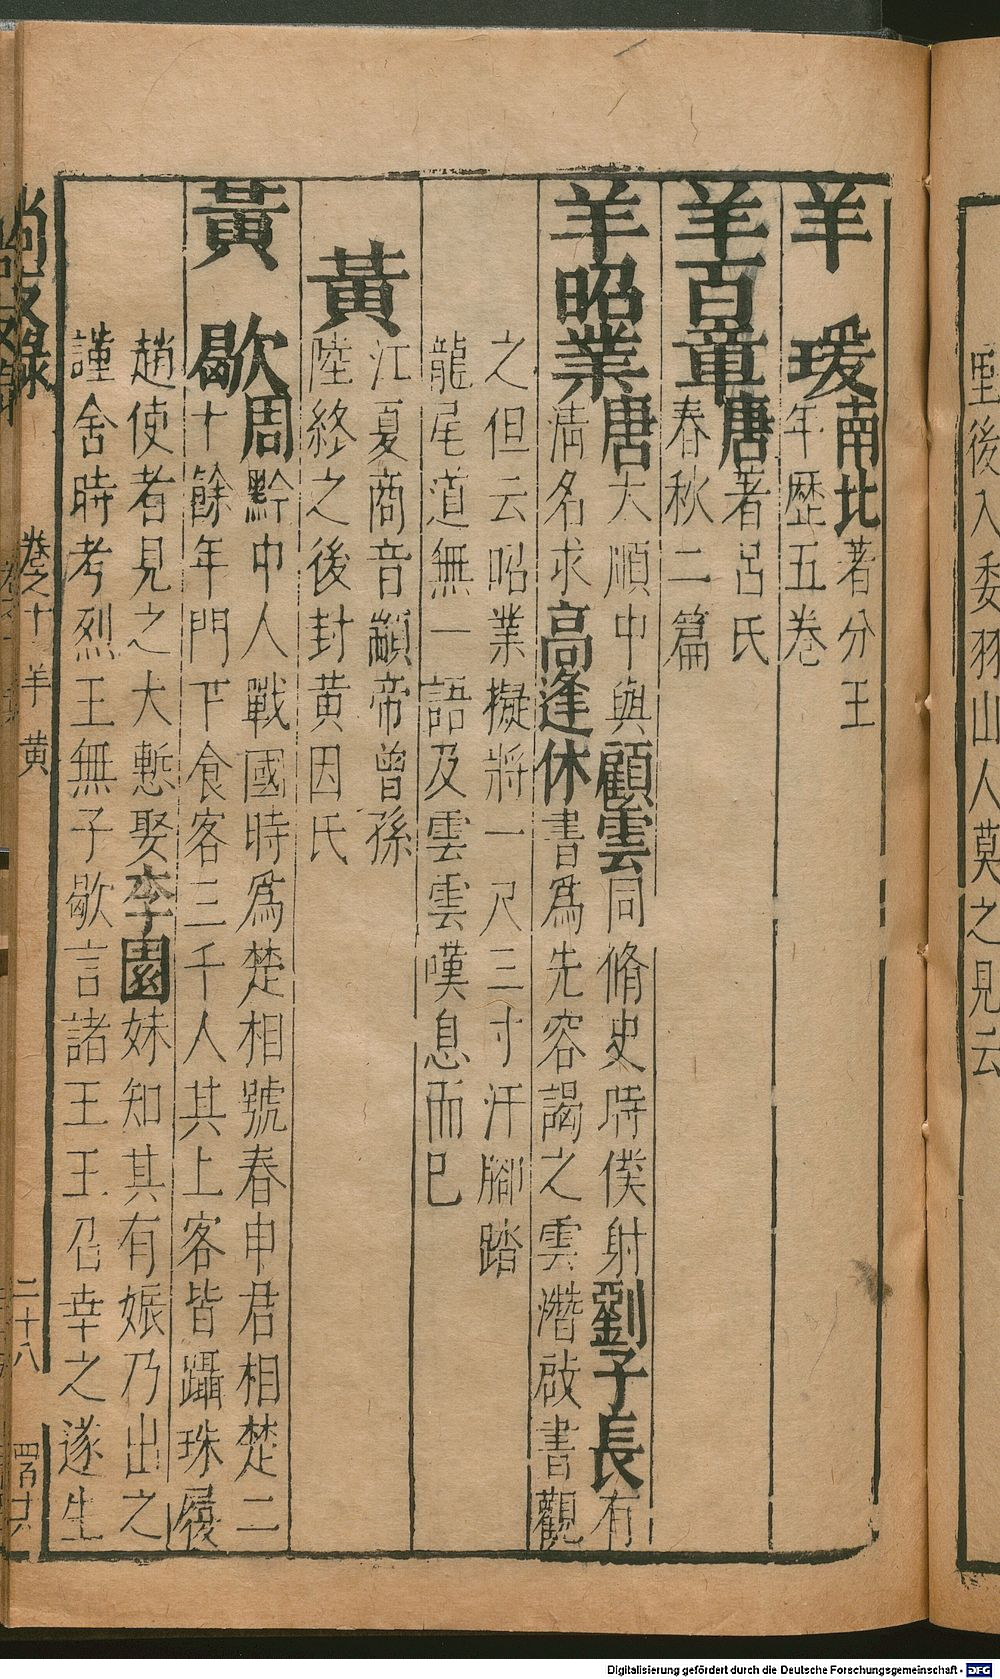 聖後入委羽山人莫之見云
羊瑗南北著分王
年歷五卷
羊百章唐著呂氏
春秋二篇
羊昭業唐大順中與顧雲同脩史時僕射劉子長有
清名求高逢休書爲先容謁之雲潛啟書觀
之但云昭業擬將一尺三寸汗腳踏
龍尾道無一語及雲雲嘆息而已
黃
江夏商音顓帝曾孫
陸終之後封黃因氏
黃歇周黔中人戰國時爲楚相號春申君相楚二
十餘年門下食客三千人其上客皆躡珠履
趙使者見之大慙娶李園妹知其有娠乃出之
謹舍時考烈王無子歇言諸王王召幸之遂生
尚友錄
卷之十 羊 黃
二十八
Digitalisierung gefördert durch die Deutsche Forschungsgemeinschaft - DFG